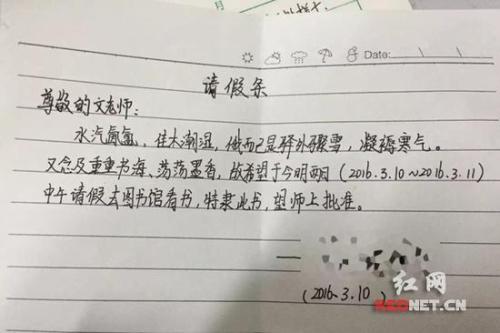 Date:
请假条
尊敬的文老师：
水汽氤氲，佳木潮湿，俄而已是驿外骤雪，凝稀寒气。
又念及重重书海、荡荡墨香，故希望于今明两日（2016.3.10~2016.3.11）
中午请假去图书馆看书，特隶此书，望师上批准。
（2016.3.10）
红网
REDNET.CN